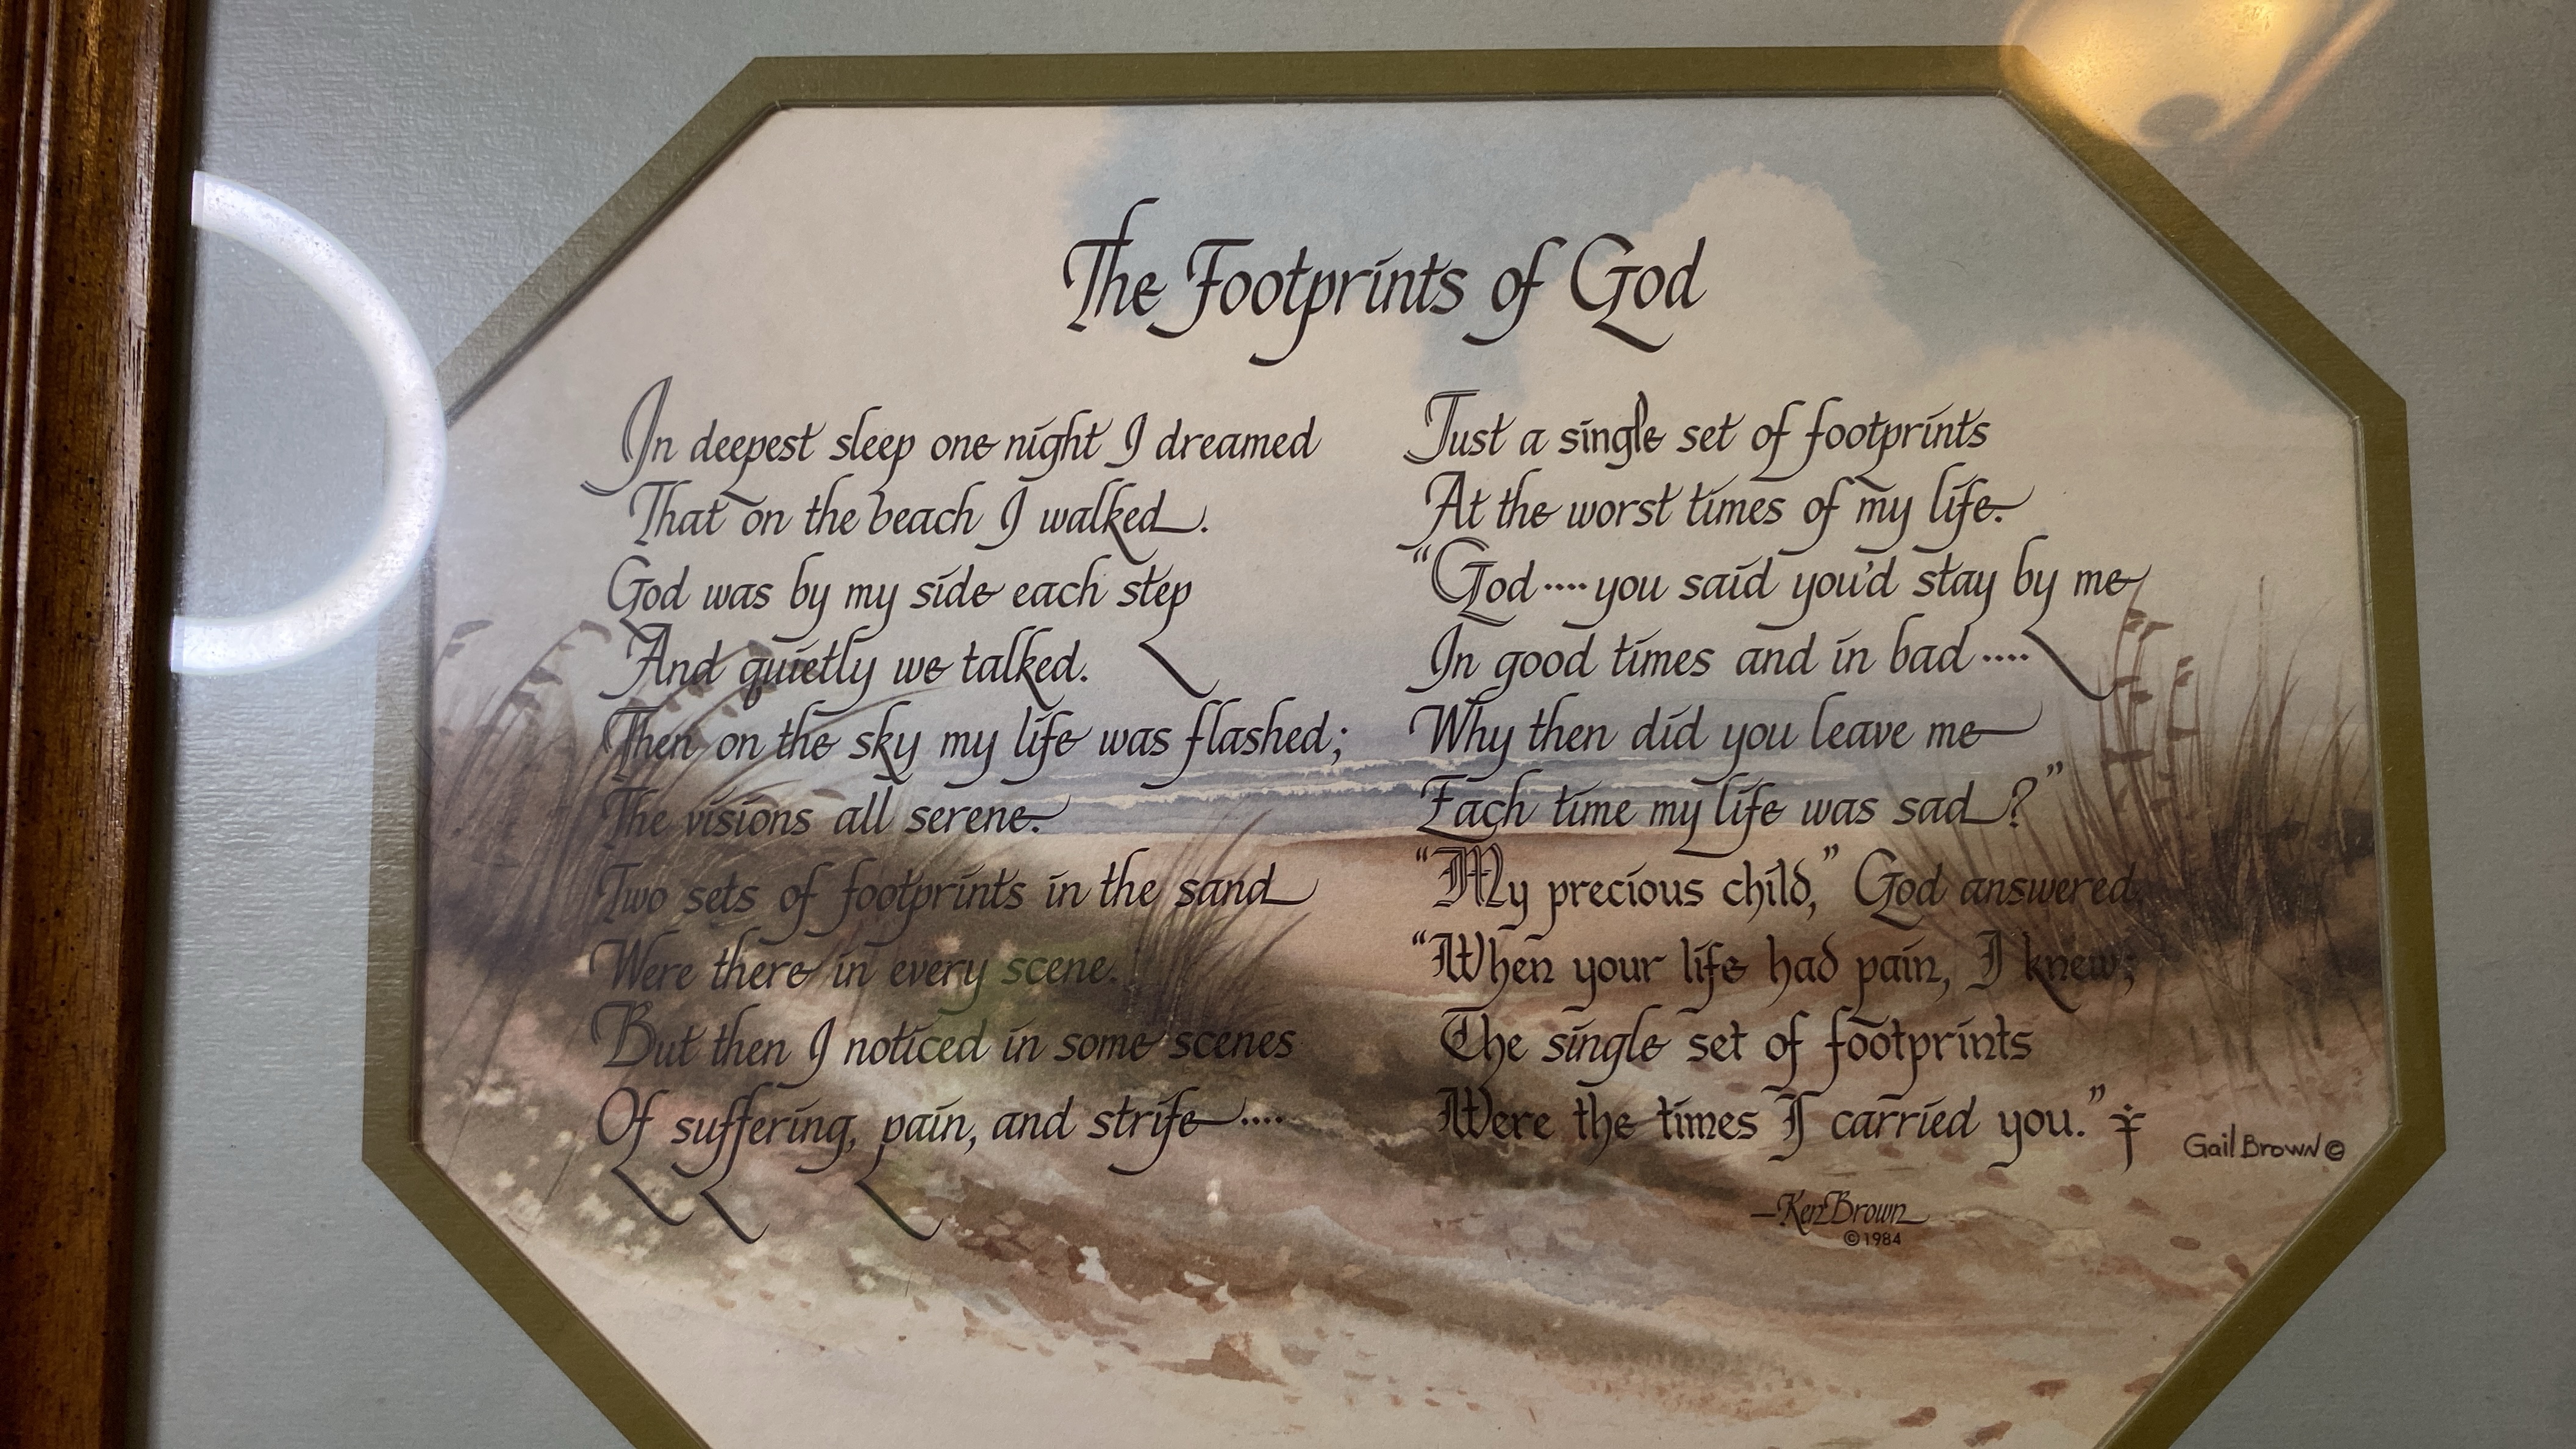 The Footprints of God
In deepest sleep one night I dreamed
That on the beach I walked.
God was by my side each step
And quietly we talked.
Then on the sky my life was flashed;
The visions all serene.
Two sets of footprints in the sand
Were there in every scene.
But then I noticed in some scenes
Of suffering, pain, and strife....
Just a single set of footprints
At the worst times of my life.
“God....you said you'd stay by me
In good times and in bad....
Why then did you leave me
Each time my life was sad?”
“My precious child,” God answered,
“When your life had pain, I knew;
The single set of footprints
Were the times I carried you.”
Gail Brown ©
—Ken Brown
©1984